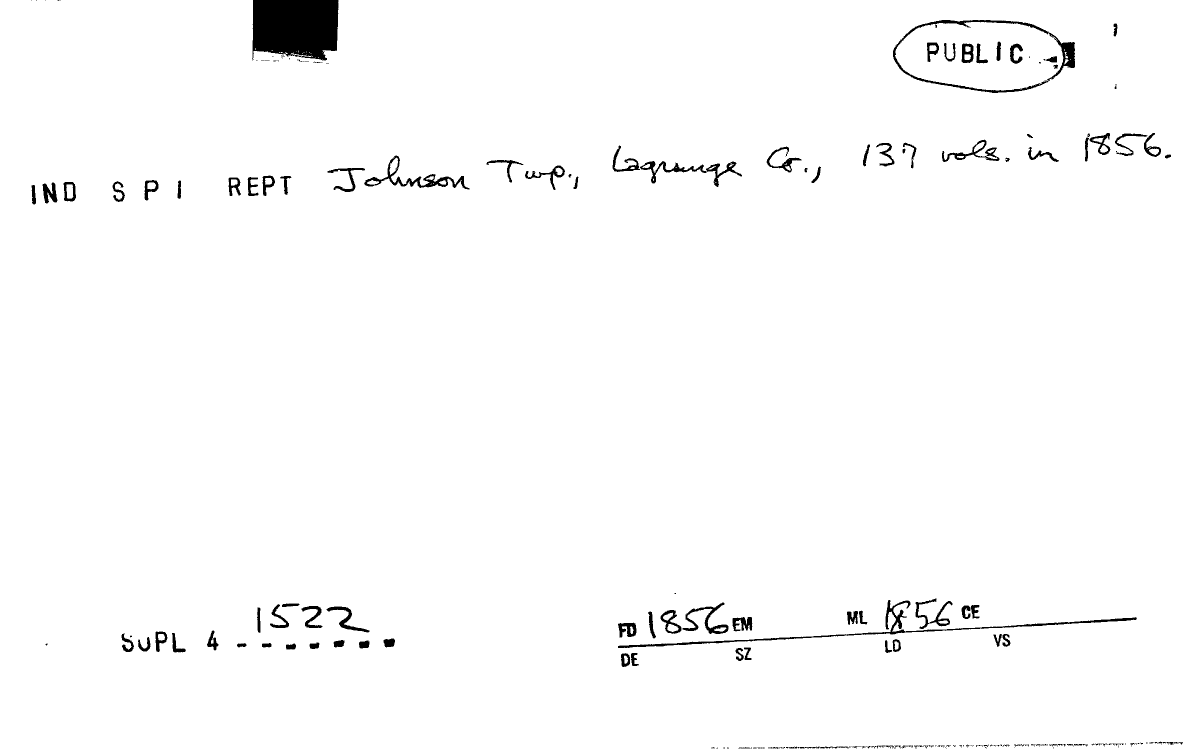 PUBLIC
IND S P I REPT Johnson Twp., Lagrange Co., 137 vols. in 1856.
1522
SUPL 4 -------
FD 1856 EM ML 1856 CE
DE SZ LD VS